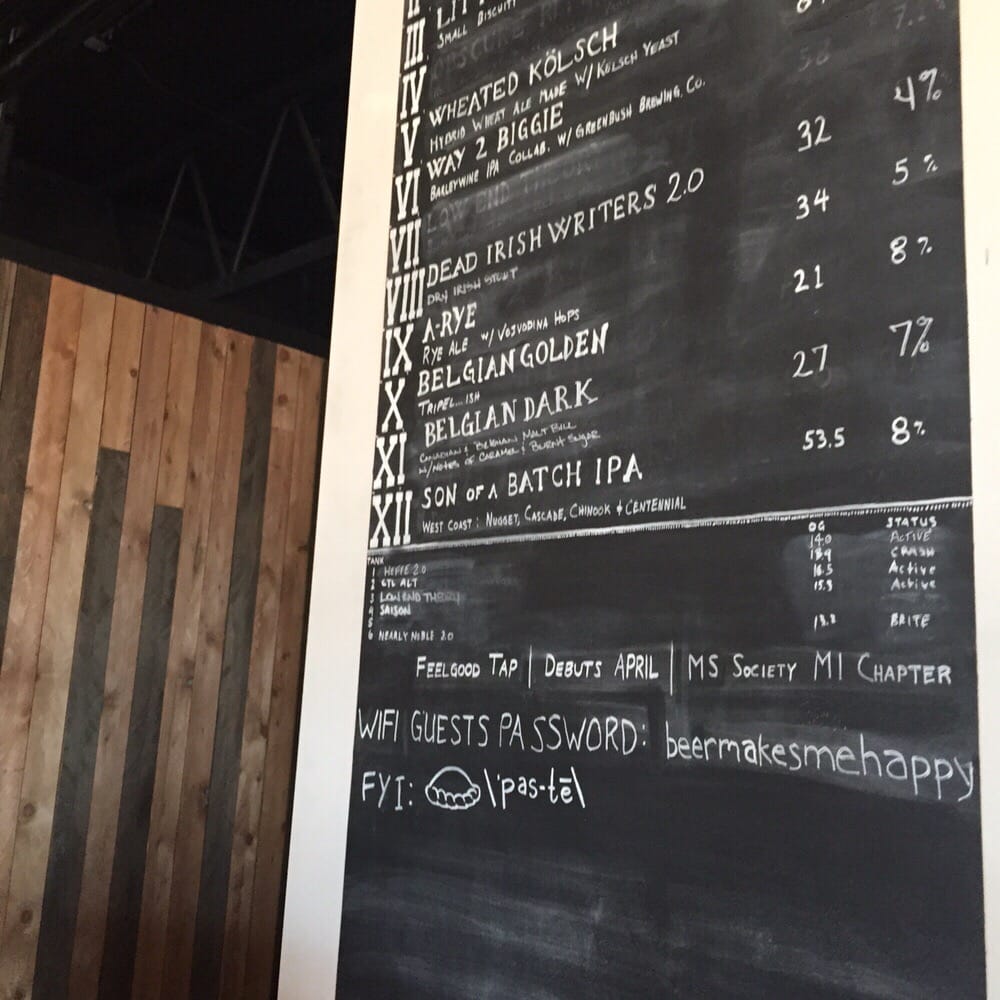 III
SMALL BISCUIT
IV
WHEATED KÖLSCH
HYBRID WHEAT ALE MADE W/ KÖLSCH YEAST
V
WAY 2 BIGGIE
BARLEYWINE IPA COLLAB. W/ GREENBUSH BREWING. CO.
VI
4%
VII
32
DEAD IRISH WRITERS 2.0
5%
DRY IRISH STOUT
VIII
34
A-RYE
8%
RYE ALE W/ VOJVODINA HOPS
IX
21
BELGIAN GOLDEN
7%
TRIPEL...ISH
X
27
BELGIAN DARK
CANADIAN & BELGIAN MALT BILL
W/ NOTES OF CARAMEL & BURNT SUGAR
XI
53.5 8%
SON OF A BATCH IPA
WEST COAST: NUGGET, CASCADE, CHINOOK & CENTENNIAL
XII
TANK OG STATUS
1 HEFFE 2.0 14.0 ACTIVE
2 GTL ALT CRASH
3 LOW END THEORY 16.5 Active
4 SAISON 15.9 Active
5
6 NEARLY NOBLE 2.0 BRITE
FEELGOOD TAP | DEBUTS APRIL | MS SOCIETY MI CHAPTER
WIFI GUESTS PASSWORD: beermakesmehappy
FYI: \'pas-tē\